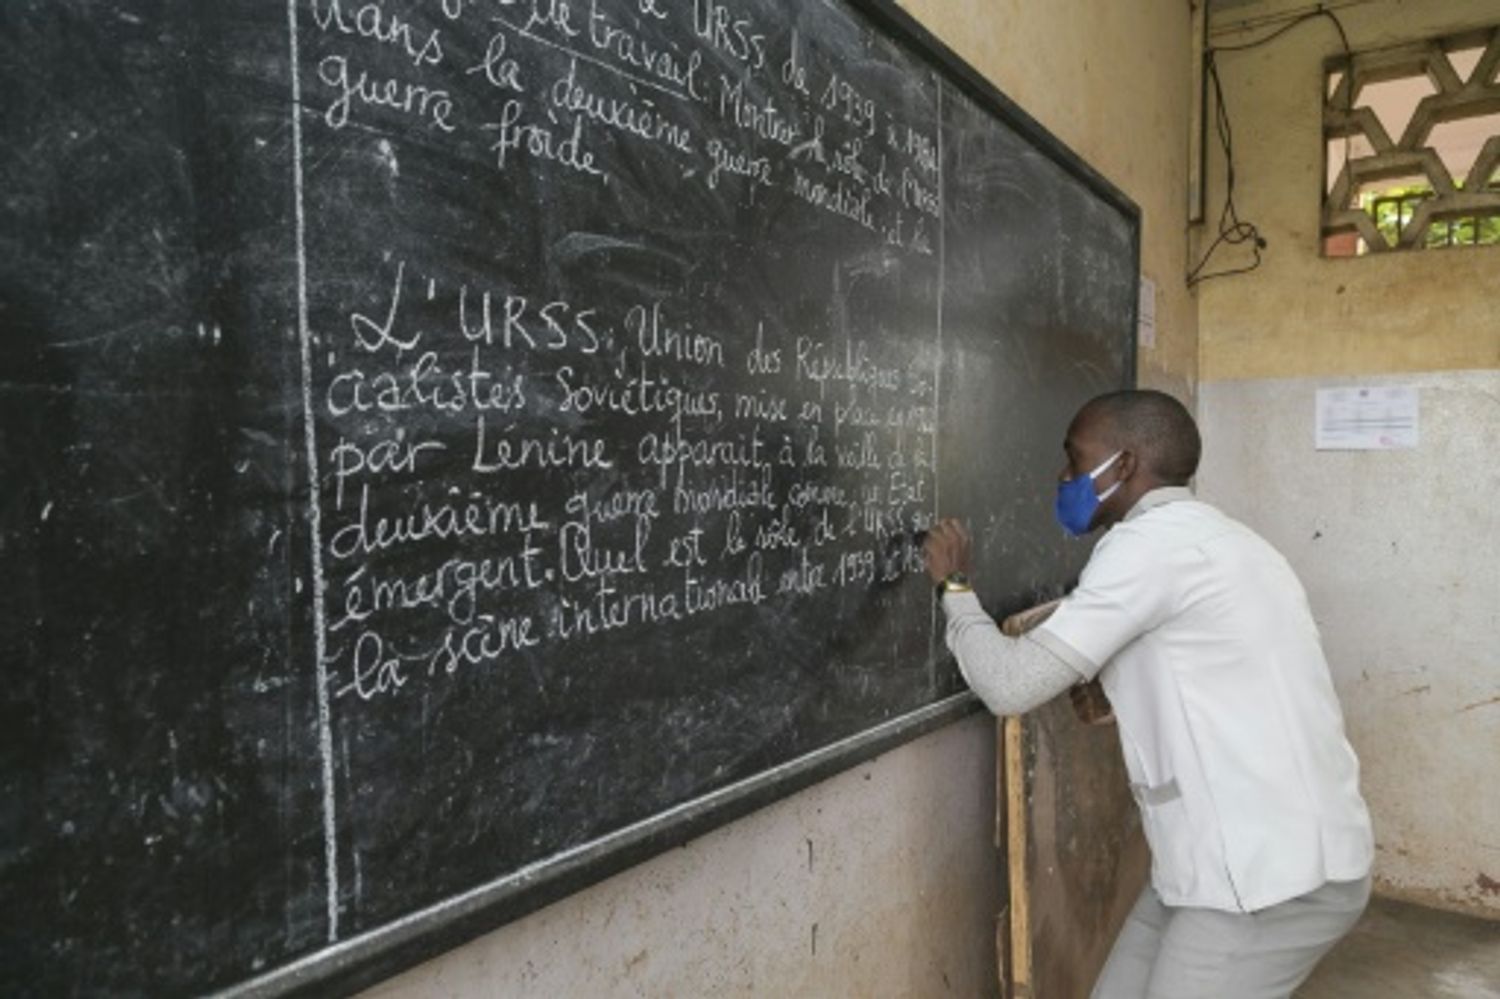 de travail: Montrer le rôle de l'URSS
URSS de 1939 à
dans la deuxième guerre mondiale et la
guerre froide.
L'URSS: Union des Républiques So-
cialistes Soviétiques, mise en place
par Lénine apparait, à la veille de la
deuxième guerre mondiale comme un Etat
émergent. Quel est le rôle de l'URSS sur
la scène internationale entre 1939 et